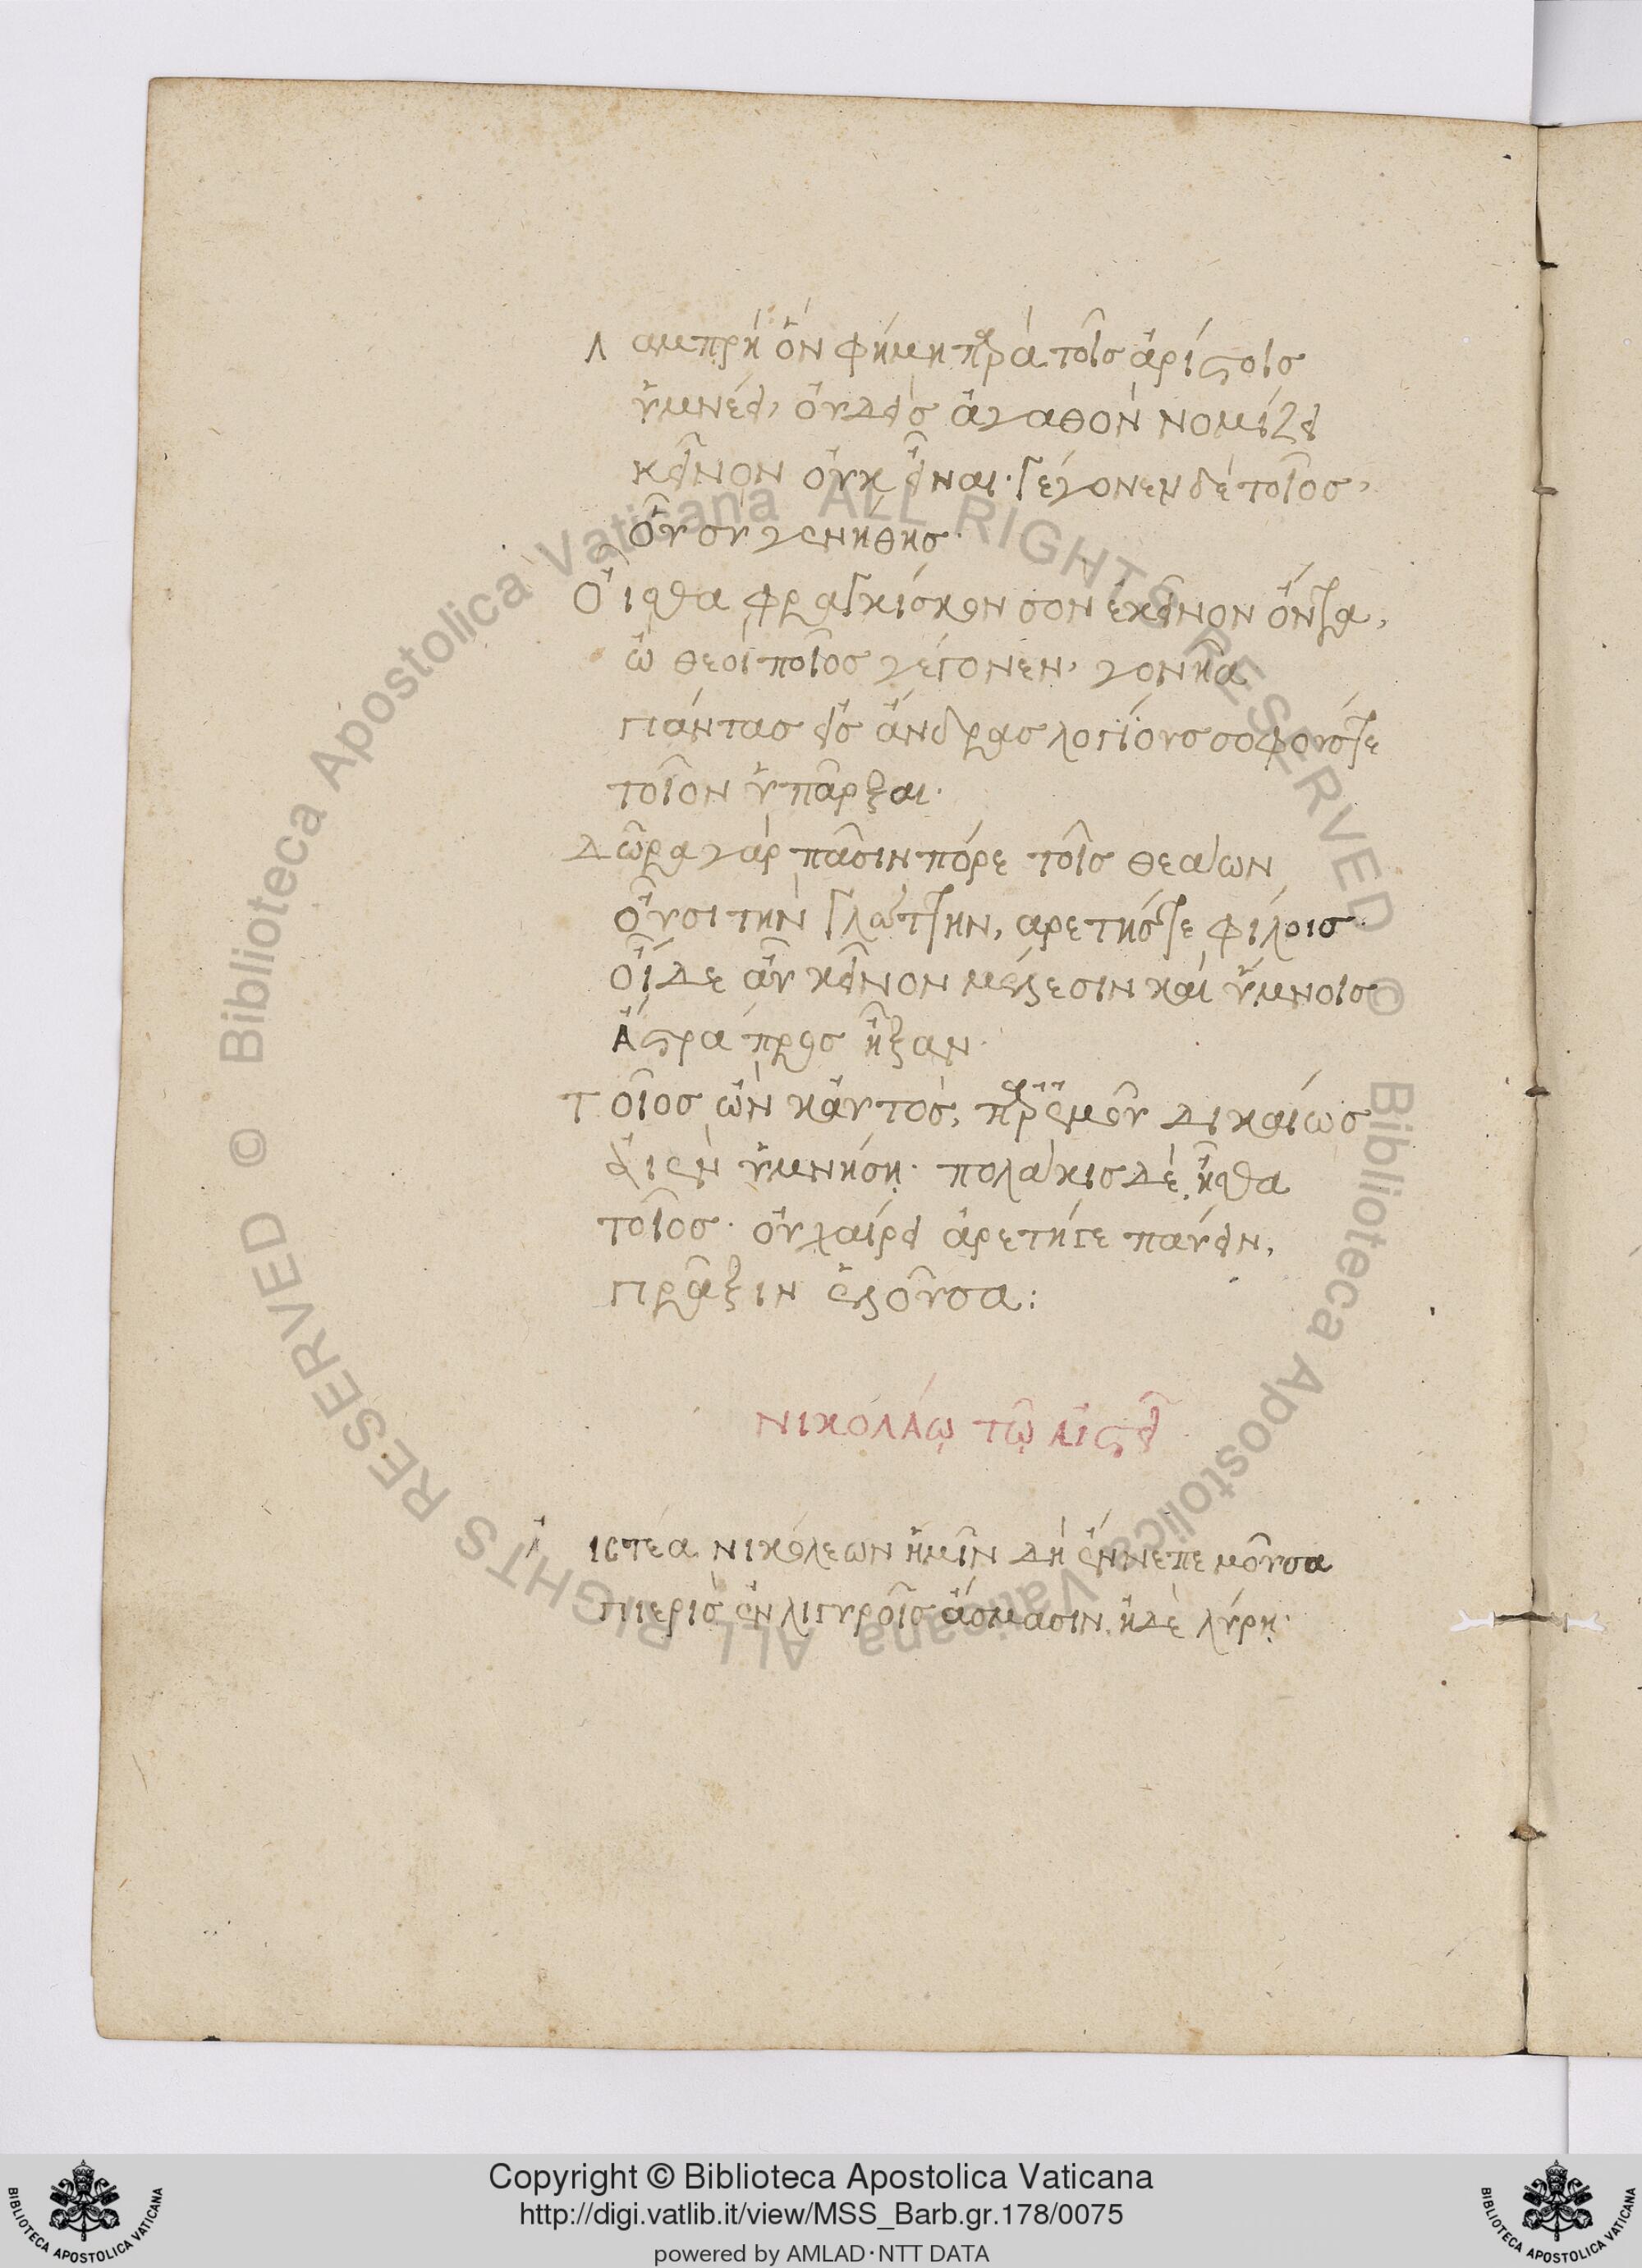 Λαμπρὴ ὃν φήμη παρὰ τοῖς ἀρίστοις
ὑμνέει, οὐδεὶς ἀγαθὸν νομίζει
κεῖνον οὐκ εἶναι· γέγονεν δὲ τοῖος,
οὗ σὺ γενήθης·
Οἶσθα φραγκίσκον σὸν ἐκεῖνον ὄντα,
ὦ θεοὶ ποῖος γέγονεν, γονῆα
πάντας εἰς ἄνδρας λογίους σοφούς τε
τοῖον ὑπᾶρξαι·
Δῶρα γὰρ πᾶσιν πόρε τοῖς θεάων
οὖσι τὴν γλώττην, ἀρετῆς τε φίλοις·
οἵδε αὖ κεῖνον μέλεσιν καὶ ὕμνοις
Ἄστρα πρὸς ἧξαν·
Τοῖος ὢν καὐτὸς, παρ' ἐμοῦ δικαίως
αἰὲν ὑμνήσῃ· πολάκις δὲ ἦσθα
τοῖος· οὐ χαίρει ἀρετή γε παύειν,
πρᾶξιν ἑλοῦσα:
ΝΙΚΟΛΆῳ τῷ Αἰστεῖ
Ἀιστέα νικόλεων ἡμῖν δὴ ἔννεπε μοῦσα
πιερὶς ἐν λιγυροῖς ᾄσμασιν ἠδὲ λύρῃ·
Copyright © Biblioteca Apostolica Vaticana
http://digi.vatlib.it/view/MSS_Barb.gr.178/0075
powered by AMLAD·NTT DATA
BIBLIOTECA APOSTOLICA VATICANA
BIBLIOTECA APOSTOLICA VATICANA
© Biblioteca Apostolica Vaticana ALL RIGHTS RESERVED
© Biblioteca Apostolica Vaticana ALL RIGHTS RESERVED